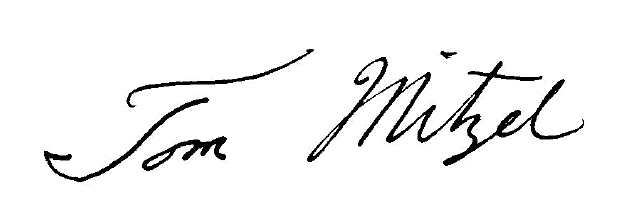 Tom Mitzel